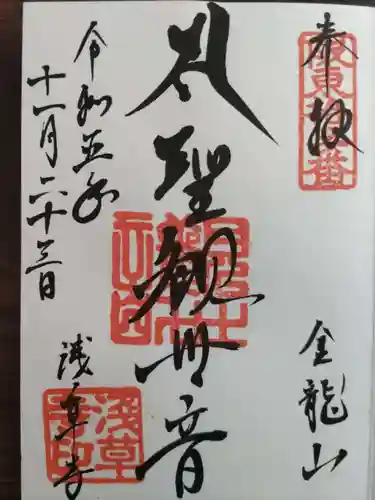 奉拝
坂東十三番
金龍山
聖観世音
令和五年
十一月二十三日
浅草寺
浅草
寺印